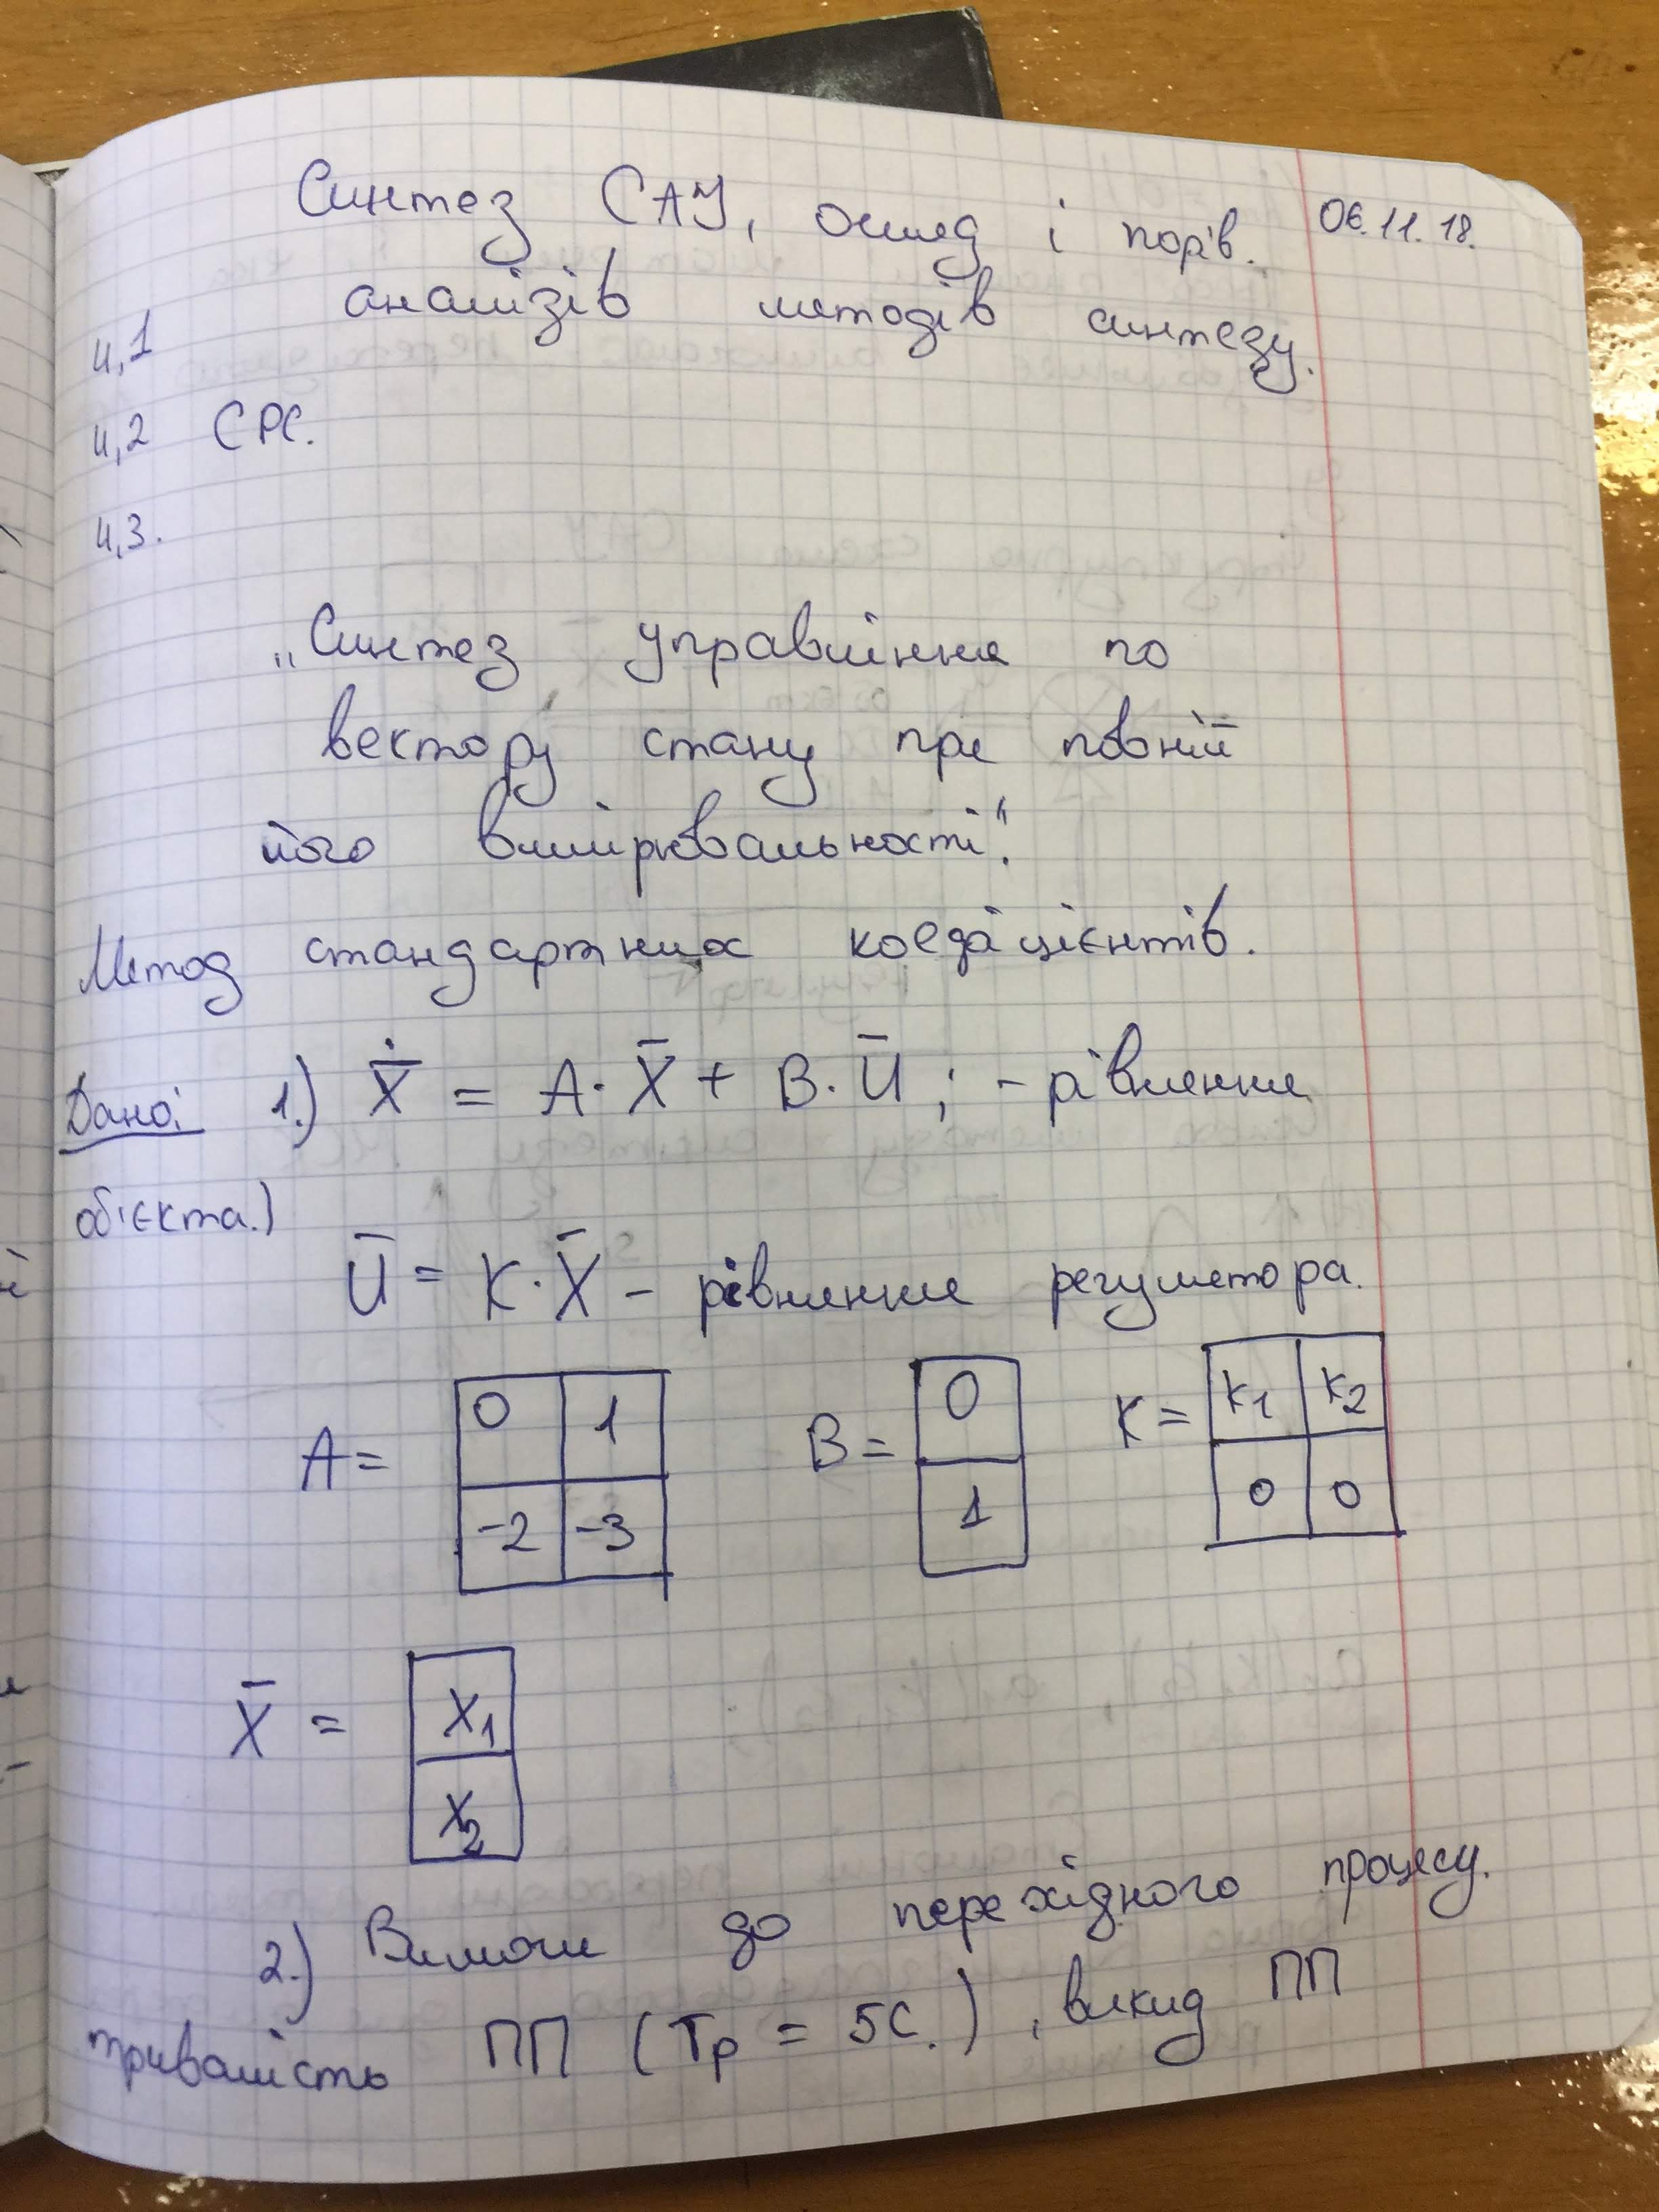 Синтез САУ, огляд і порів. 06.11.18.
аналізів методів синтезу.
4,1
4,2 СРС.
4,3.
„Синтез управління по
вектору стану при повній
його вимірювальності".
Метод стандартних коефіцієнтів.
Дано: 1.) Ẋ̄ = A·X̄ + B·Ū; - рівняння
об'єкта.)
Ū = K·X̄ - рівняння регулятора.
A= 0 1 B= 0 K= k1 k2
-2 -3 1 0 0
X̄ = X1
X2
2.) Вимоги до перехідного процесу.
тривалість ПП (Tp = 5с.), викид ПП